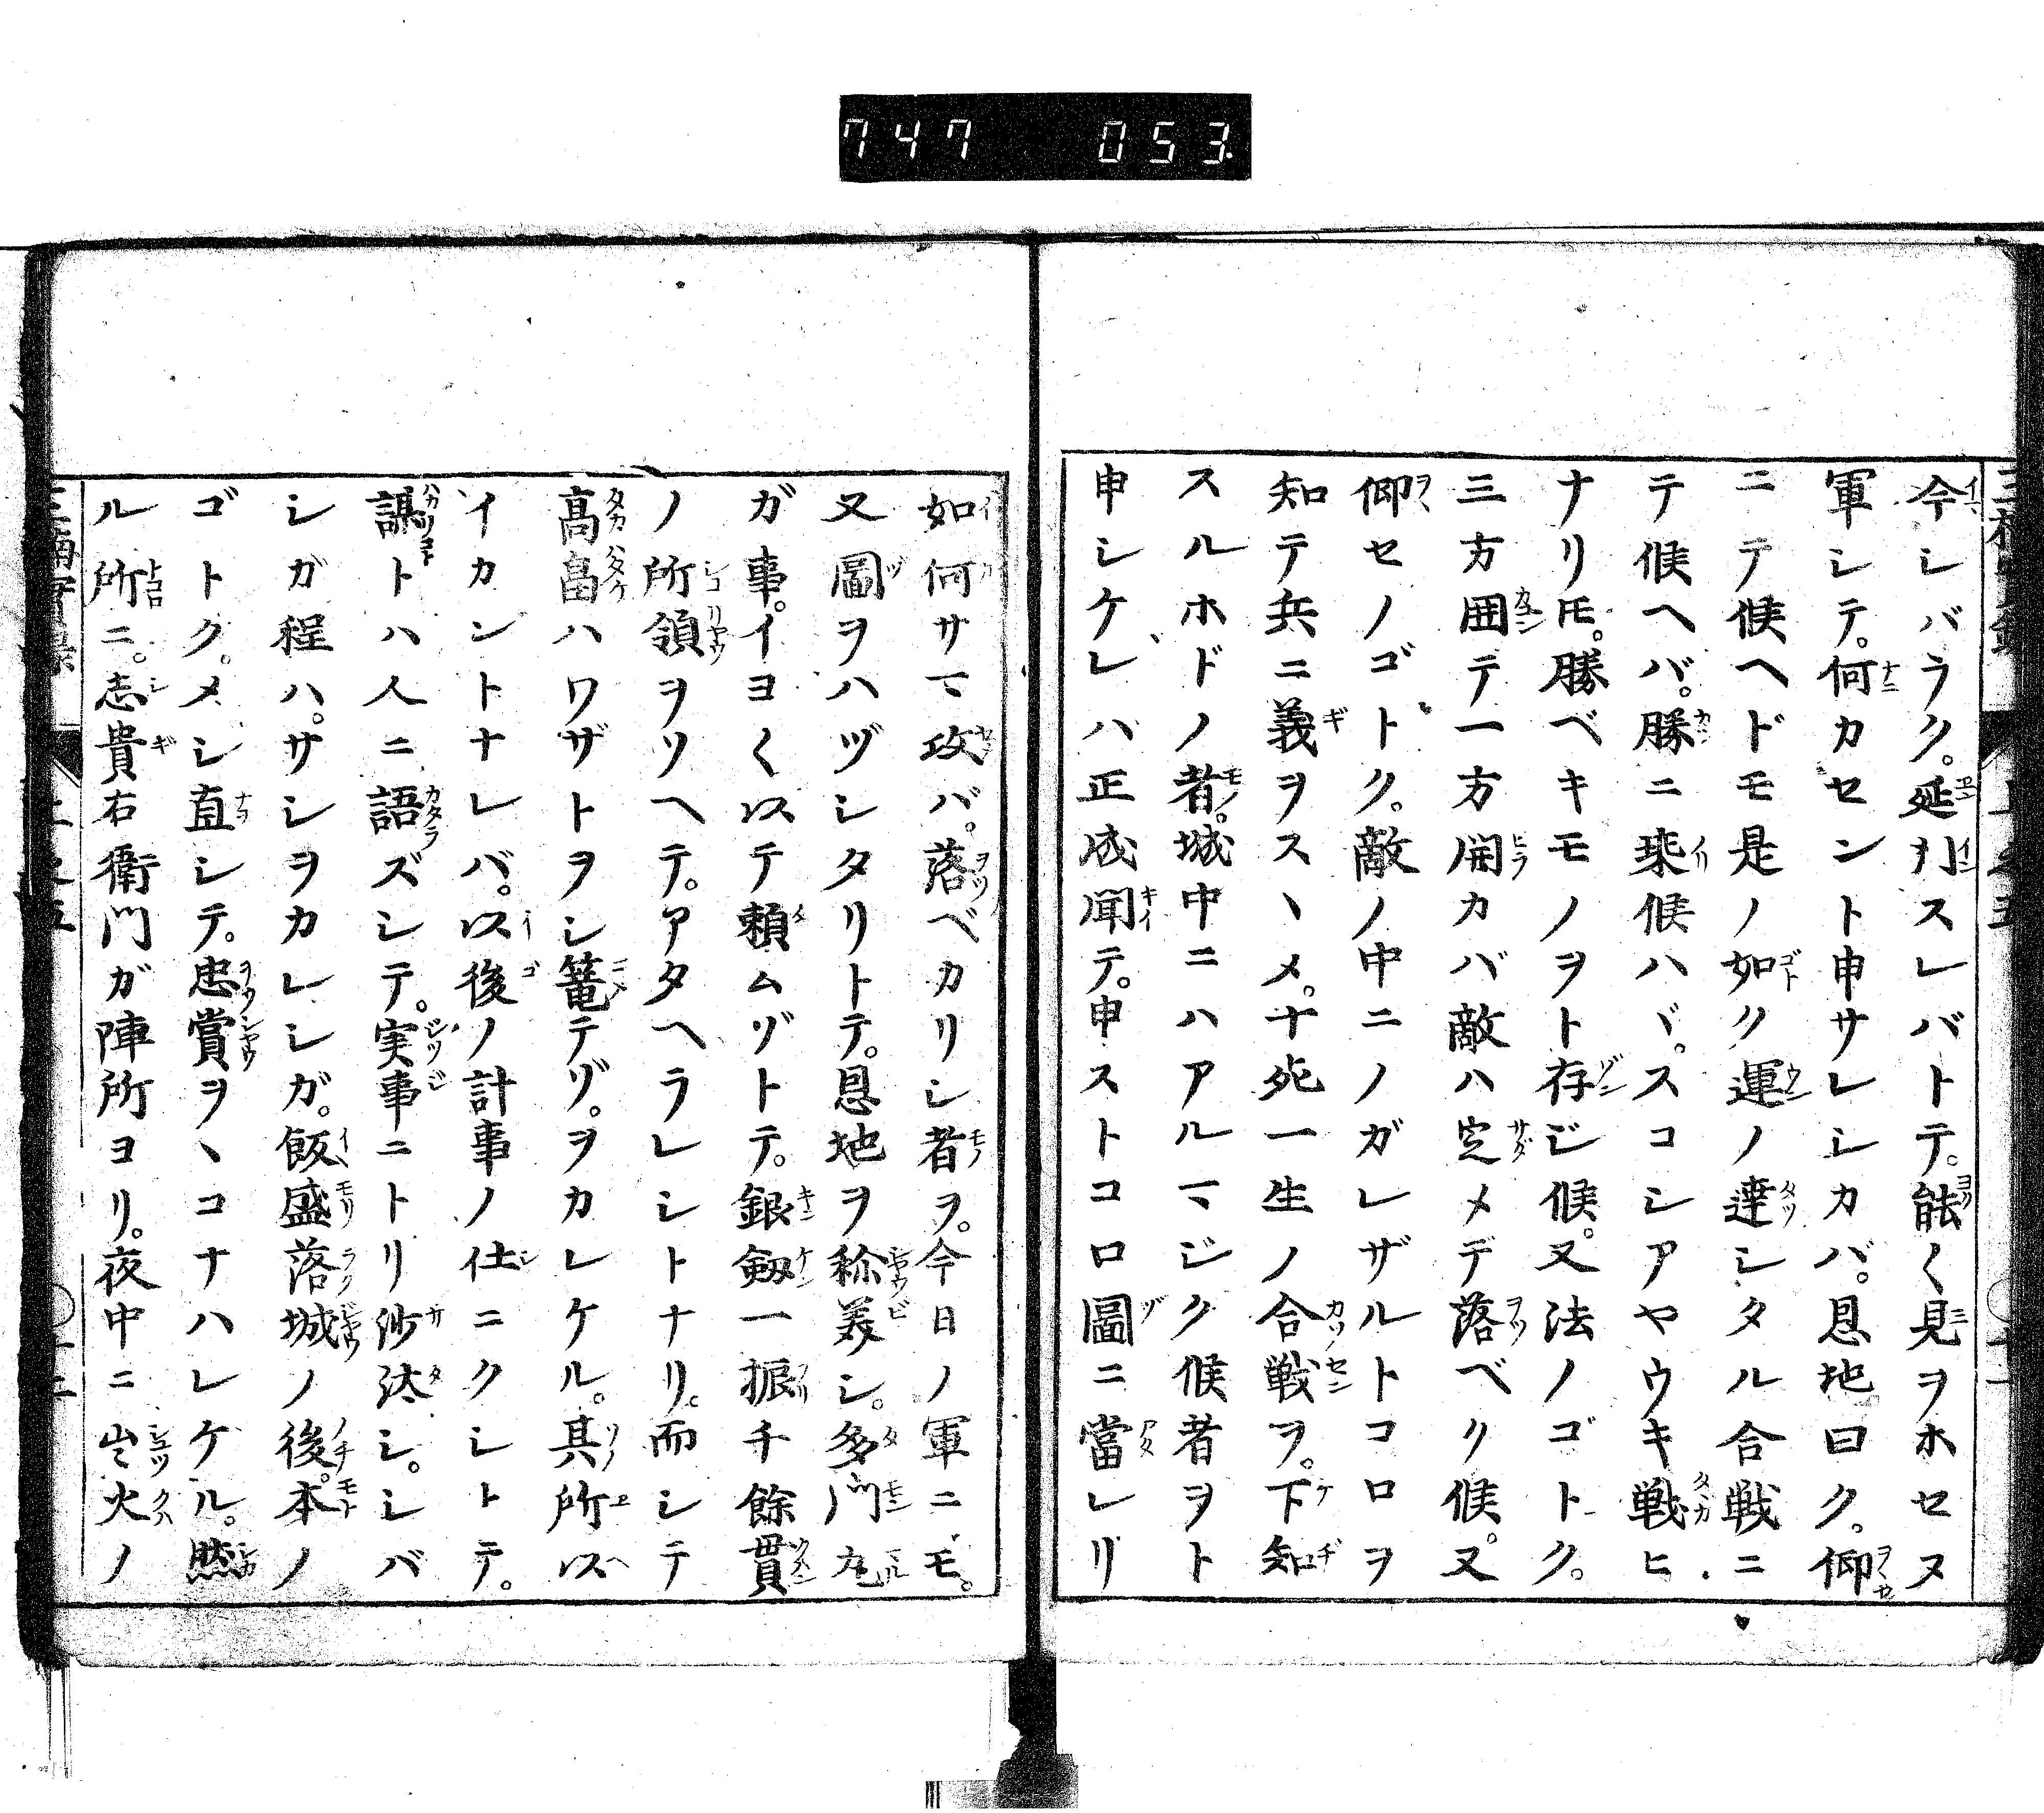 747 053
今シバラク。延引スレバトテ。能〱見ヲホセヌ
軍シテ。何カセント申サレシカバ。恩地曰ク。仰
ニテ候ヘドモ是ノ如ク運ノ達シタル合戦ニ
テ候ヘバ。勝ニ乗候ハヾ。スコシアヤウキ戦ヒ
ナリ𪜈。勝ベキモノヲト存ジ候。又法ノゴトク。
三方囲テ一方開カバ敵ハ定メデ落ベク候。又
仰セノゴトク。敵ノ中ニノガレザルトコロヲ
知テ兵ニ義ヲスヽメ。十死一生ノ合戦ヲ。下知
スルホドノ者。城中ニハアルマジク候者ヲト
申シケレハ正成聞テ。申ストコロ圖ニ當レリ
如何サマ攻バ。落ベカリシ者ヲ。今日ノ軍ニモ。
又圖ヲハヅシタリトテ。恩地ヲ称美シ。多門丸
ガ事。イヨ〱以テ頼ムゾトテ。銀剱一振千餘貫
ノ所領ヲソヘテ。アタヘラレシトナリ。而シテ
高畠ハワザトヲシ篭テゾ。ヲカレケル。其所以
イカントナレバ。以後ノ計事ノ仕ニクシトテ。
謀トハ人ニ語ズシテ。実事ニトリ沙汰シ。シバ
シガ程ハ。サシヲカレシガ。飯盛落城ノ後。本ノ
ゴトク。メシ直シテ。忠賞ヲヽコナハレケル。然
ル所ニ。志貴右衛門ガ陣所ヨリ。夜中ニ出火ノ